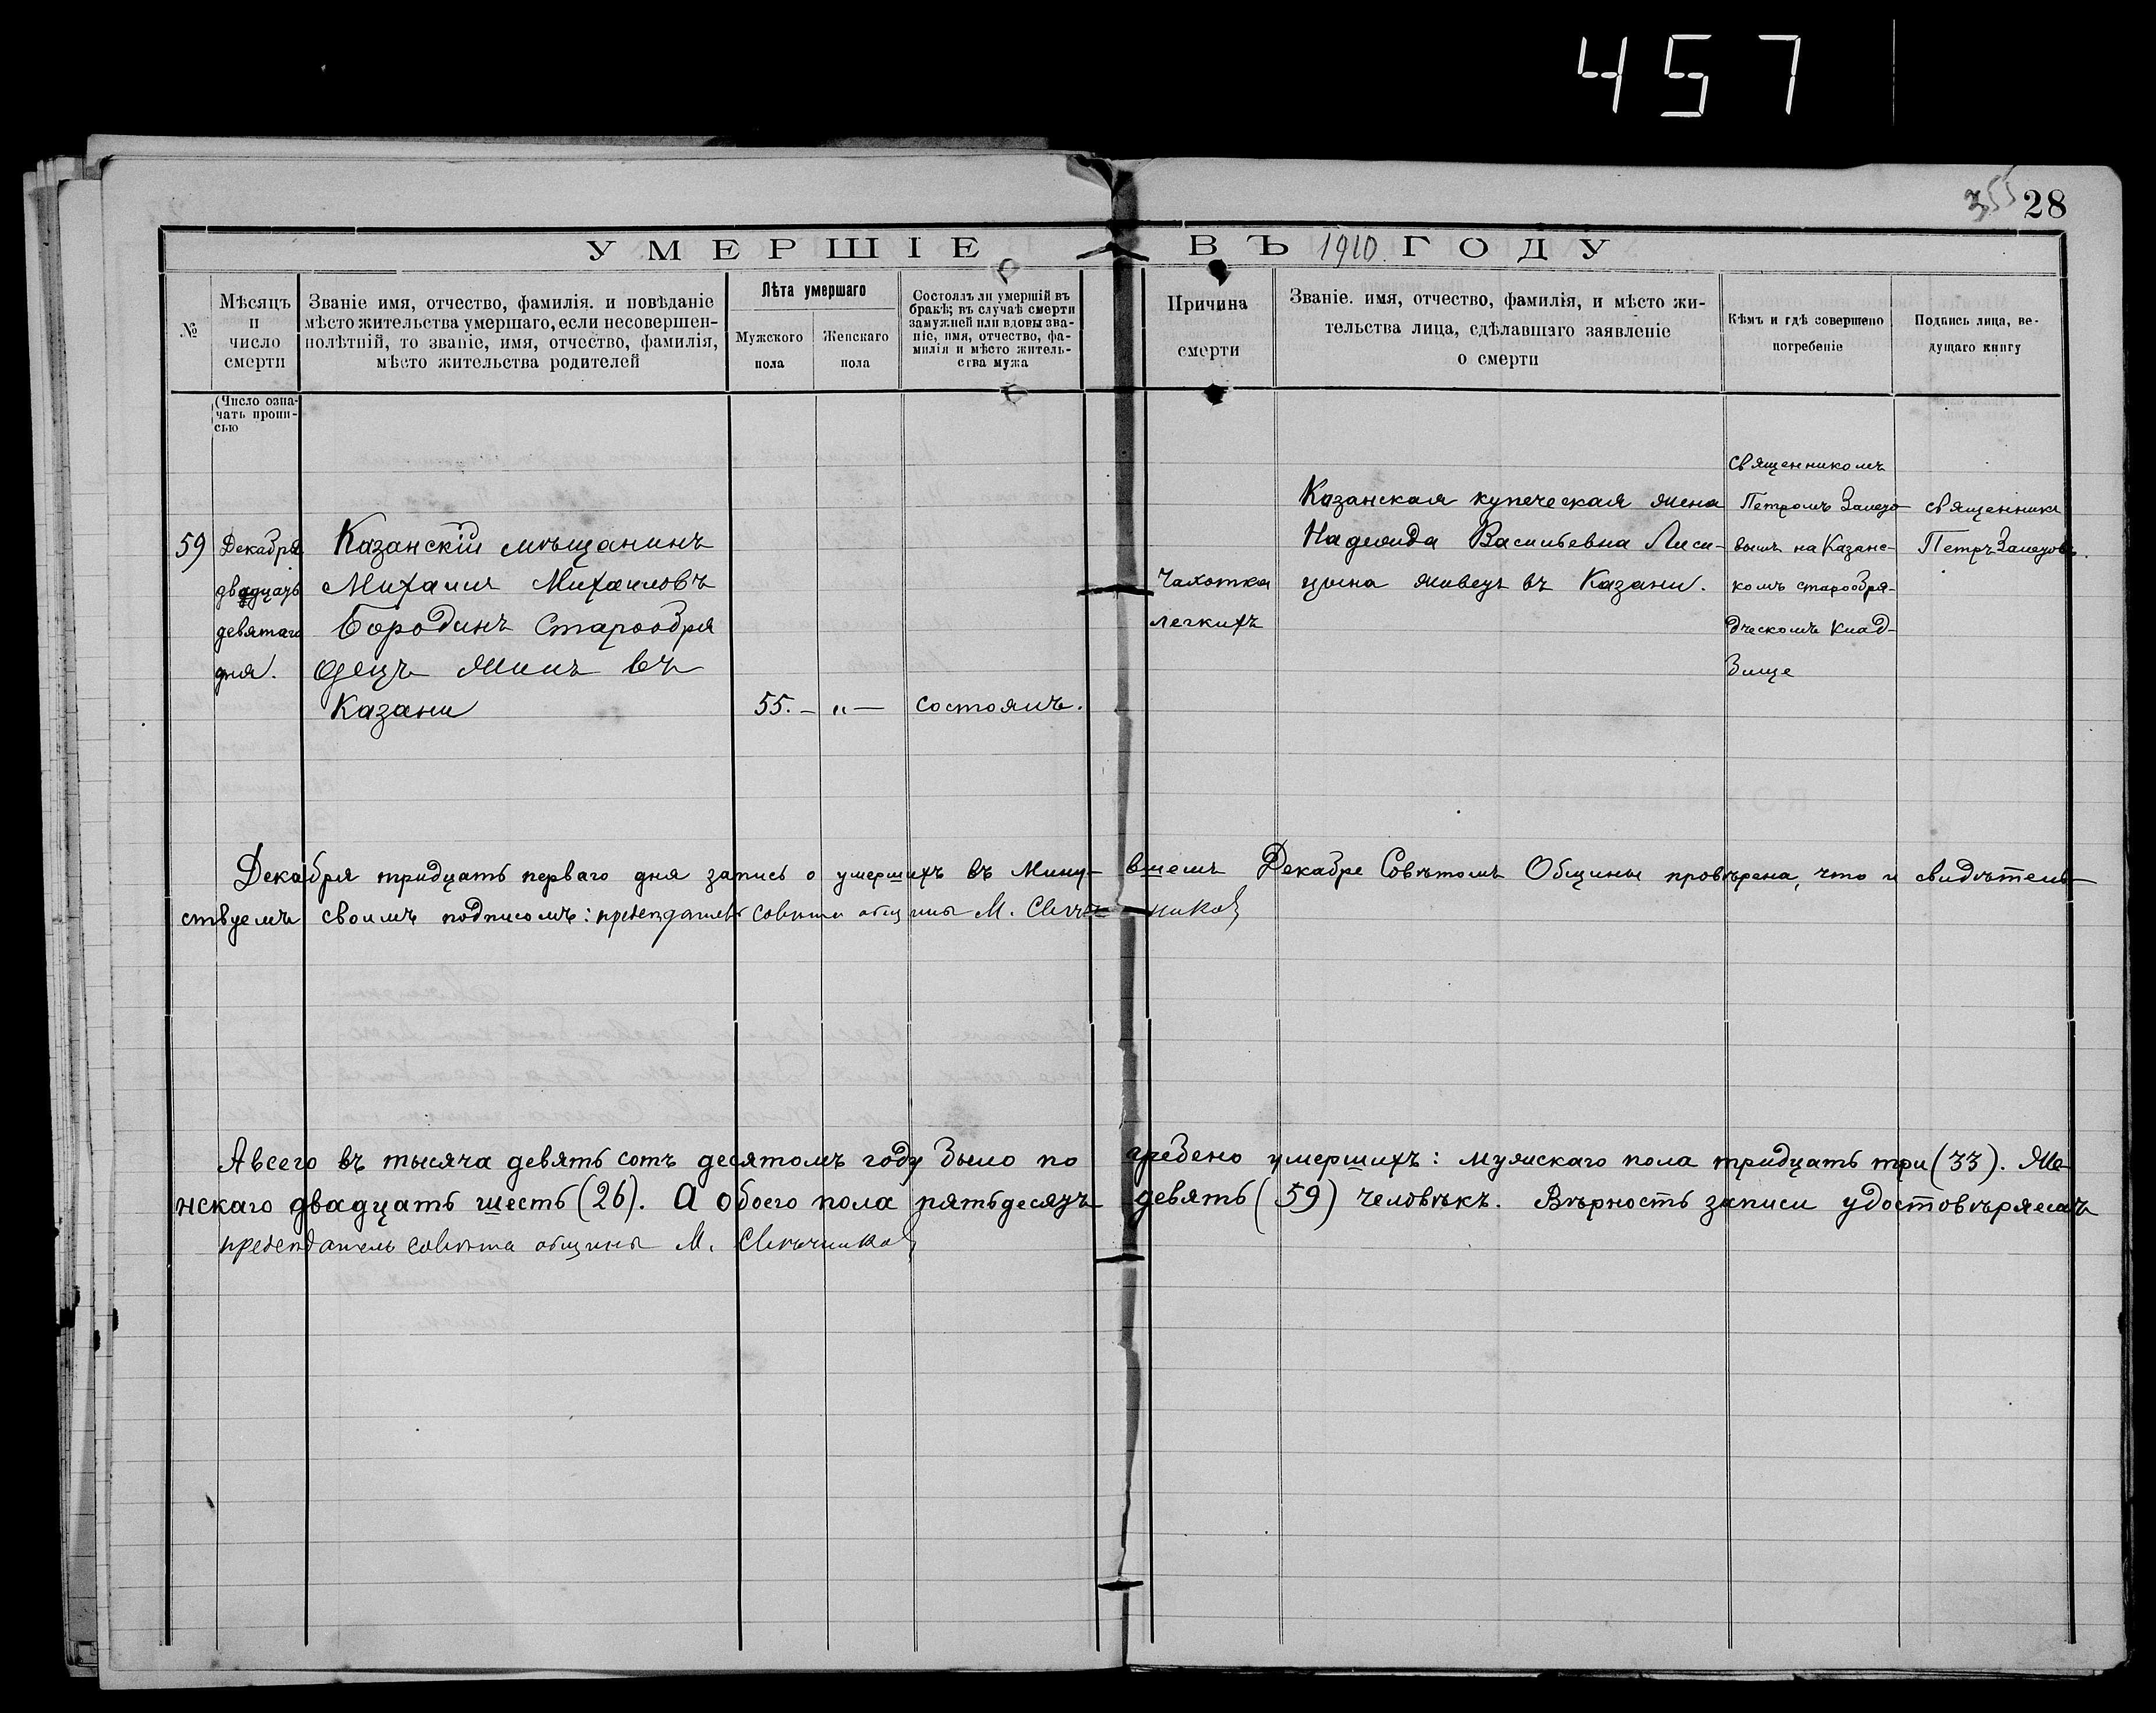 457
355 28
УМЕРШІЕ ВЪ 1910 ГОДУ
№
Мѣсяцъ
и
число
смерти
Званіе имя, отчество, фамилія. и повѣданіе
мѣсто жительства умершаго, если несовершен-
нолѣтній, то званіе, имя, отчество, фамилія,
мѣсто жительства родителей
Лѣта умершаго
Мужского
пола
Женскаго
пола
Состоялъ ли умершій въ
бракѣ; въ случаѣ смерти
замужней или вдовы зва-
ніе, имя, отчество, фа-
милія и мѣсто житель-
ства мужа
Причина
смерти
Званіе. имя, отчество, фамилія, и мѣсто жи-
тельства лица, сдѣлавшаго заявленіе
о смерти
Кѣмъ и гдѣ совершено
погребеніе
Подпись лица, ве-
дущаго книгу
(Число озна-
чать пропи-
сью
59
Декабря
двадцать
девятаго
дня.
Казанскій мѣщанинъ
Михаилъ Михаиловъ
Бородинъ Старообря
децъ жилъ въ
Казани
55. — „ —
состоялъ.
Чахотка
легкихъ
Казанская купеческая жена
Надежда Васильевна Лиси-
цына живетъ въ Казани.
священникомъ
Петромъ Залето-
вымъ на Казанс-
комъ старообря-
дческомъ клад-
бище
священникъ
Петръ Залетовъ.
Декабря тридцать перваго дня запись о умершихъ въ Мину- вшемъ Декабре Совѣтомъ Общины провѣрена, что и свидѣтель-
ствуемъ своимъ подписомъ: предсѣдатель совѣта общины М. Свѣчниковъ
А всего въ тысяча девять сотъ десятомъ году было по гребено умершихъ: мужскаго пола тридцать три (33). Же-
нскаго двадцать шесть (26). А обоего пола пятьдесятъ девять (59) человѣкъ. Вѣрность записи удостовѣряемъ
председатель совѣта общины М. Свѣчниковъ